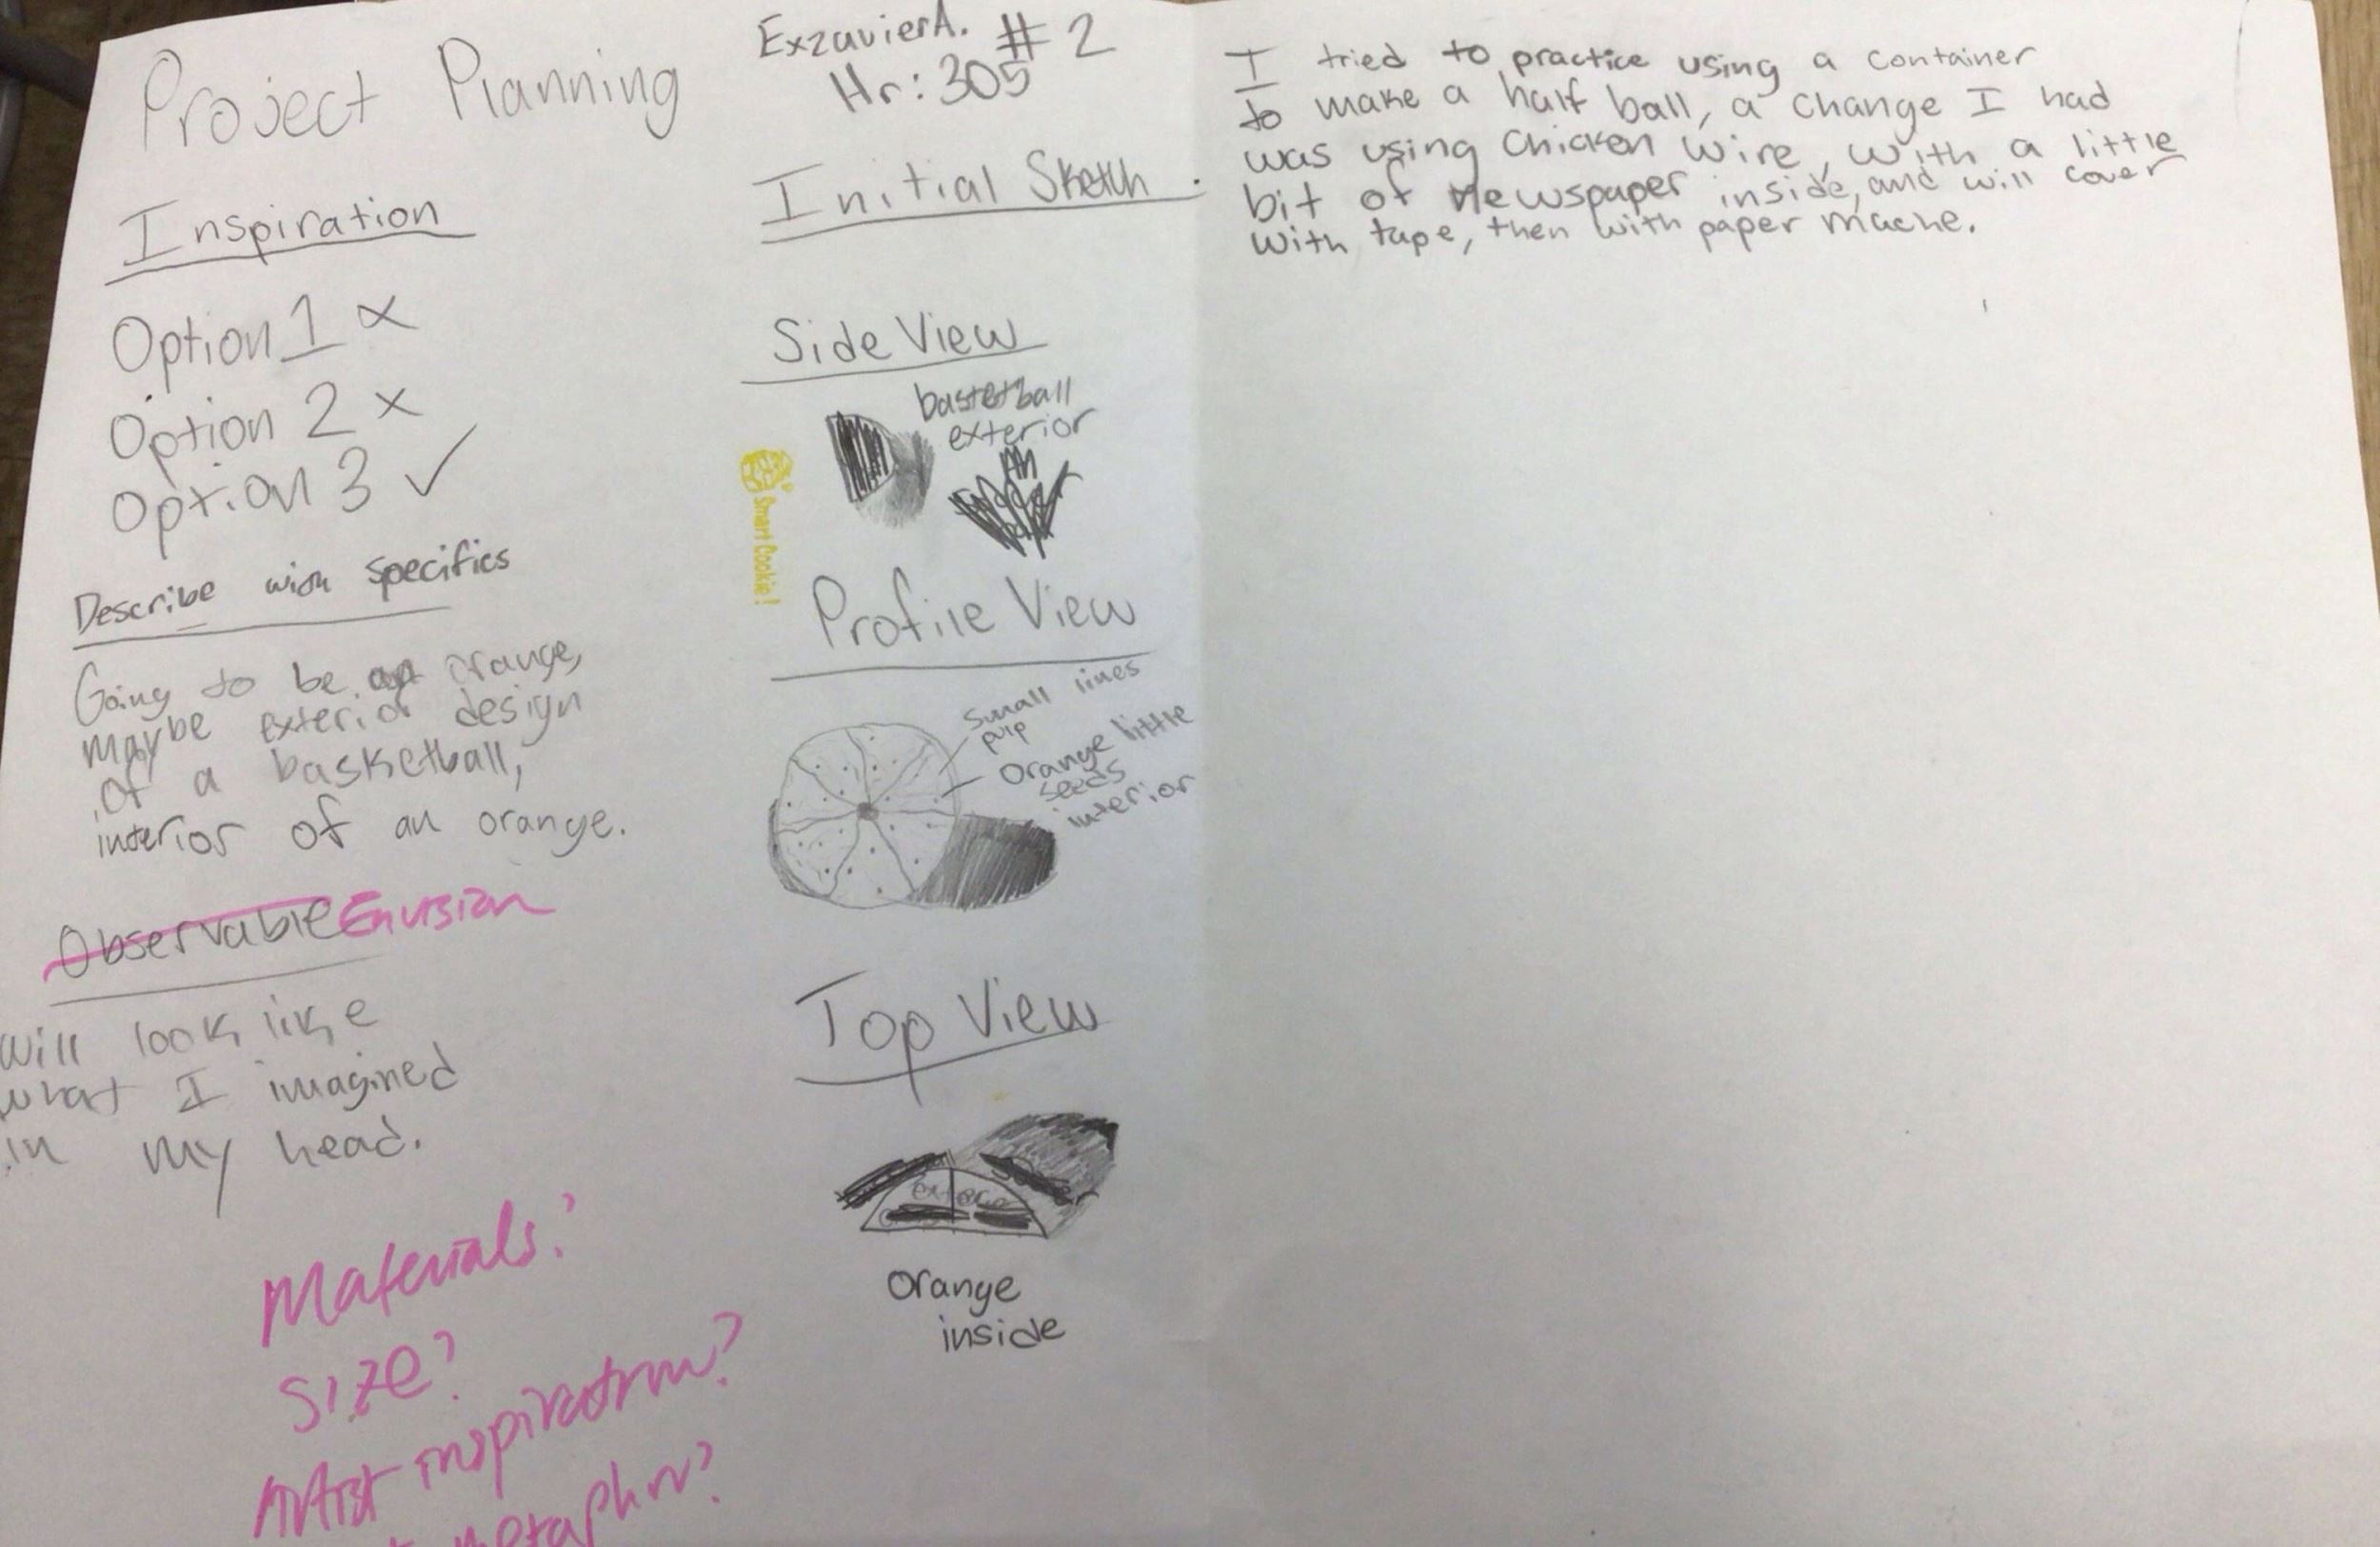 Project Planning
Inspiration
Option 1 x
Option 2 x
Option 3 ✓
Describe with specifics
Going to be an orange,
maybe exterior design
of a basketball,
interior of an orange.
Observable Envision
Will look like
what I imagined
in my head.
Materials?
Size?
Artist inspiration?
metaphor?
Exzavier A. #2
Hr: 305
Initial Sketch
Side View
basketball
exterior
Smart Cookie!
Profile View
Small lines
pulp
Orange little
seeds
interior
Top View
exterior
Orange
inside
I tried to practice using a container
to make a half ball, a change I had
was using Chicken Wire, with a little
bit of newspaper inside, and will cover
With tape, then with paper mache.